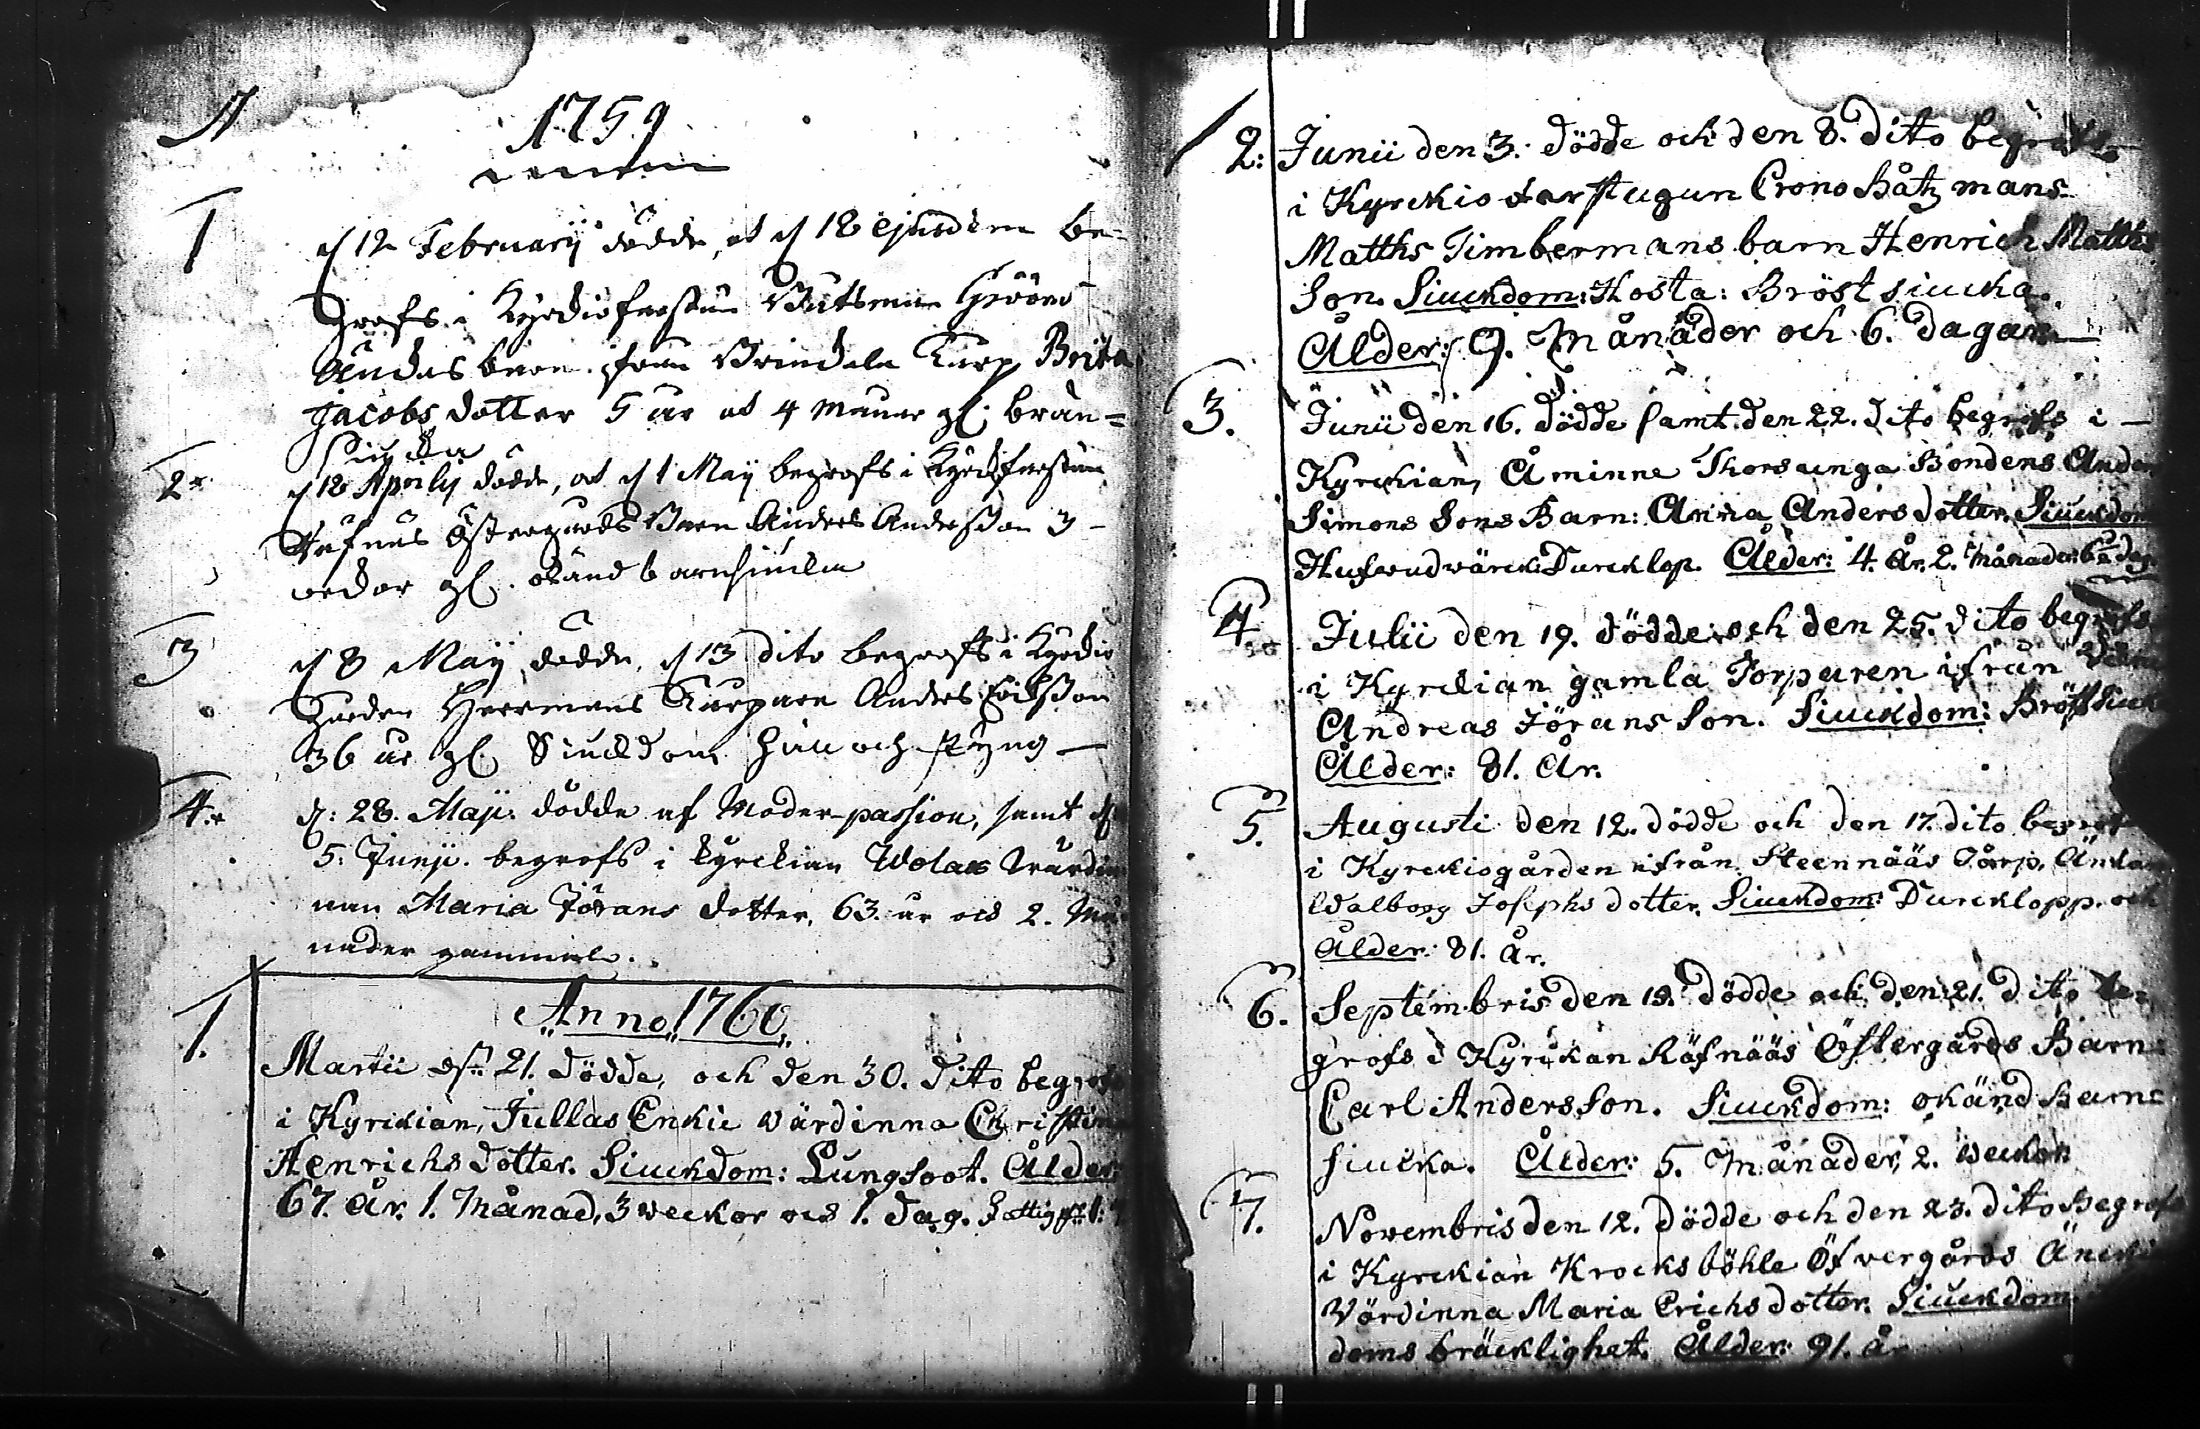 N
1759
1 d 12 February dödde, et d 18 ejusdem be=
grofs i Kyrckioferstun Båtsman
barn ifrån Torp Brita
Jacobs dotter 5 år et 4 månar gl. brän=
siucka
2. d 18 Aprily dödde, et d 1 Maij begrofs i Kyrckferstun
Räfnäs Östergårds Barn Anders Andersson 3
vekor gl. okänd barnsiucka
3 d 8 Maij dödde, d 13 dito begrofs i Kyrckio
Gården Torparen Anders Ericksson
36 år gl. Siuckdom håll och styng —
4. d: 28. Maji. dödde af Moder-passion, samt d
5. Junji. begrofs i kyrckian Wolars Wärdin
nan Maria Jörans dotter, 63. år och 2. Må
nader gammal.
Anno 1760.
1. Martii d. 21. dödde, och den 30. dito begrofs
i Kyrckian, Jullas Enckie värdinna Christina
Henrichs dotter. Siuckdom: Lungsoot. Ålder:
67. år. 1. Månad, 3 veckor och 1. dag.
2: Junii den 3. dödde och den 8. dito begrofs
i Kyrckioforstugun Crono Båtzmans
Matths Timbermans barn Henrich Matths
Son. Siuckdom: Hosta: Bröstsiucka.
Ålder: 9. Månader och 6. dagar
3. Junii den 16. dödde samt den 22. dito begrofs i —
Kyrckian, Åminne Thorsunga Bondens Anders
Simons Sons Barn: Anna Anders dotter. Siuckdom
Hufwudwärck: Durcklop. Ålder: 4. År. 2. Månader 6 dag.
4. Julii den 19. dödde och den 25. dito begrofs
i Kyrckian gamla Torparen ifrån
Andreas Jörans Son. Siuckdom: Bröstsiuck
Ålder: 81. År.
5. Augusti den 12. dödde och den 17. dito begrof
i Kyrckiogården ifrån Steennääs Torp, Änckan
Walborg Josephs dotter. Siuckdom: Durcklopp. och
Ålder: 81. År.
6. Septembris den 19. dödde och den 21. dito be=
grofs i Kyrckan Räfnääs Östergårds Barn:
Carl Anders Son. Siuckdom: okänd Barna
siucka. Ålder: 5. Månader, 2. veckor.
7. Novembris den 12. dödde och den 23. dito Begrofs
i Kyrckian Krocksböhle Öfvergårds Änckie
Värdinna Maria Erichs dotter. Siuckdom:
doms bräcklighet. Ålder: 91. år